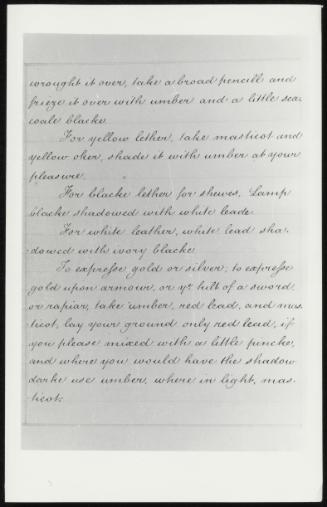 wrought it over, take a broad pencill and
frieze it over with umber and a little sea
coale blacke.
For yellow lether, take masticot and
yellow oker, shade it with umber at your
pleasure.
For blacke lether for shewes, Lamp
blacke shadowed with white leade.
For white leather, white lead sha-
dowed with ivory blacke
To expresse gold or silver; to expresse
gold upon armour, or yr hilt of a sword
or rapiar, take umber, red lead, and mas-
ticot, lay your ground only red lead, if
you please mixed with a little pincke,
and where you would have the shadow
darke use umber, where in light, mas-
ticot.